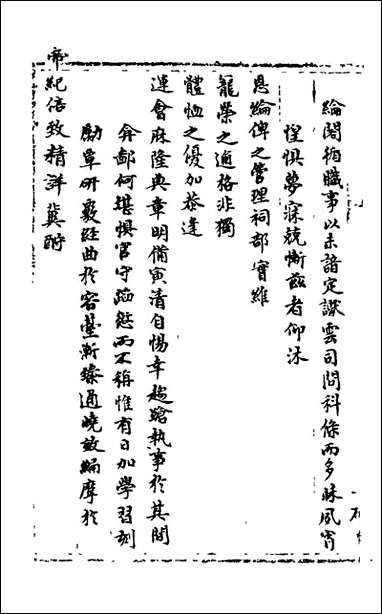 綸閣拘職事以未諳定讞雲司問科條而多昧夙宵
惶惧夢寐兢慚茲者仰沐
恩綸俾之管理祠部實維
寵榮之逾格非獨
體恤之優加恭逢
運會庥隆典章明備寅清自惕幸趨蹌執事於其間
弇鄙何堪惧官守蹈愆而不稱惟有日加學習刻
勵覃研覈經曲於容臺漸臻通曉效編摩於
帝紀倍致精詳冀酹